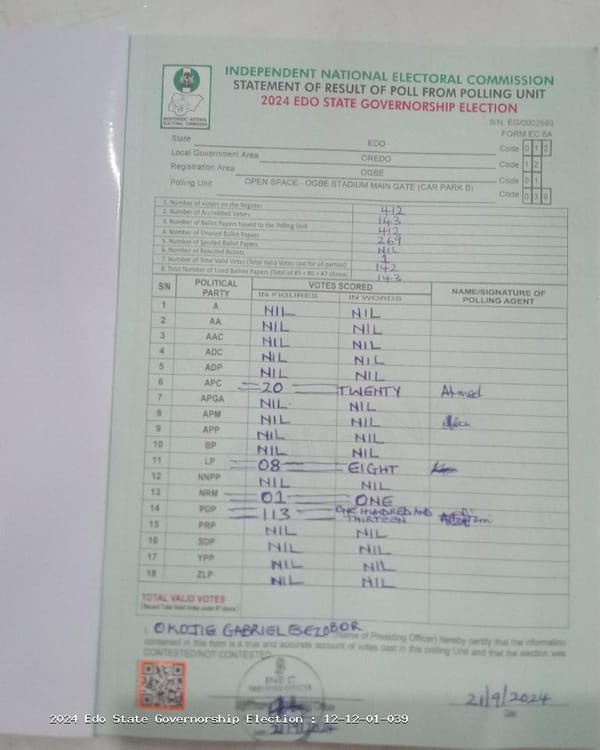 INDEPENDENT NATIONAL ELECTORAL COMMISSION
STATEMENT OF RESULT OF POLL FROM POLLING UNIT
2024 EDO STATE GOVERNORSHIP ELECTION
INDEPENDENT NATIONAL ELECTORAL COMMISSION
S/N: EG/0002693
FORM EC 8A
State EDO Code 0 1 2
Local Government Area OREDO Code 1 2
Registration Area OGBE Code 0 1
Polling Unit OPEN SPACE - OGBE STADIUM MAIN GATE (CAR PARK B) Code 0 3 9
1. Number of Voters on the Register 412
2. Number of Accredited Voters 143
3. Number of Ballot Papers Issued to the Polling Unit 412
4. Number of Unused Ballot Papers 269
5. Number of Spoiled Ballot Papers NIL
6. Number of Rejected Ballots 1
7. Number of Total Valid Votes (Total Valid Votes cast for all parties) 142
8. Total Number of Used Ballot Papers (Total of #5 + #6 + #7 above) 143
S/N POLITICAL PARTY VOTES SCORED NAME/SIGNATURE OF POLLING AGENT
IN FIGURES IN WORDS
1 A NIL NIL
2 AA NIL NIL
3 AAC NIL NIL
4 ADC NIL NIL
5 ADP NIL NIL
6 APC 20 TWENTY Ahmed
7 APGA NIL NIL
8 APM NIL NIL
9 APP NIL NIL
10 BP NIL NIL
11 LP 08 EIGHT
12 NNPP NIL NIL
13 NRM 01 ONE
14 PDP 113 ONE HUNDRED AND THIRTEEN
15 PRP NIL NIL
16 SDP NIL NIL
17 YPP NIL NIL
18 ZLP NIL NIL
TOTAL VALID VOTES
(Record Total Valid Votes under #7 above)
I, OKOJIE GABRIEL ESEZOBOR (Name of Presiding Officer) hereby certify that the information
contained in this form is a true and accurate account of votes cast in this polling Unit and that the election was
CONTESTED/NOT CONTESTED
INEC
PRESIDING OFFICER
21/9/2024
21/9/2024
Date
2024 Edo State Governorship Election : 12-12-01-039